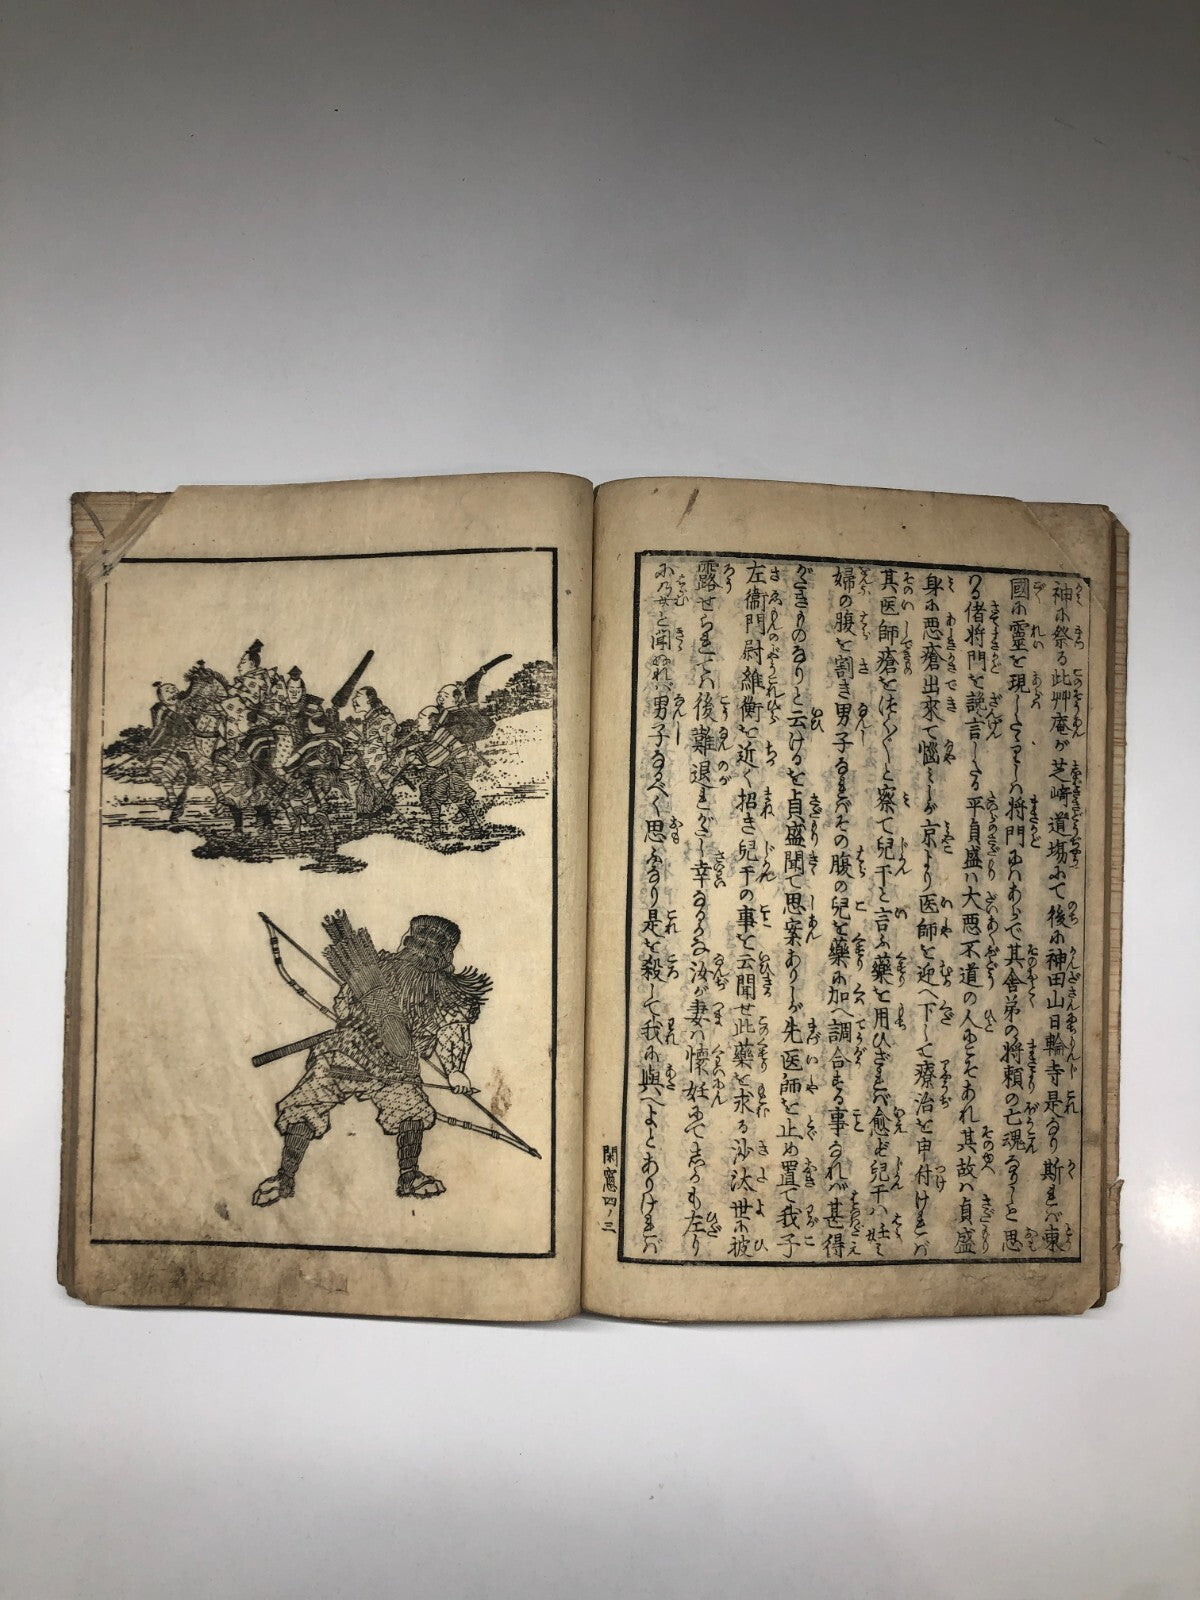 神に祭る此艸庵が芝﨑道場にて後に神田山日輪寺是なり斯れば東
國に靈を現したまひしハ将門にハあらで其舎弟の将頼の亡魂なりしと思
ハる偖将門を讒言したる平貞盛ハ大悪不道の人にこそあれ其故ハ貞盛
身に悪瘡出來て惱ミしが京より医師を迎へ下して療治を申付けれバ
其医師瘡をつく〴〵と察て兒干と言ふ藥を用ひざれバ愈ず兒干ハ妊
婦の腹を割き男子なれバその腹の兒を藥に加へ調合する事なれバ甚得
がたきものなりと云けるを貞盛聞て思案ありしが先医師を止め置て我子
左衞門尉維衡を近く招き兒干の事を云聞せ此藥を求る沙汰世に披
露せられてハ後難退れがたし幸なるかな汝が妻ハ懐妊にてしかも左り
に乃せと聞ぬれバ男子なるべく思ふなり是を殺して我に與へよとありけれバ
閑窻四ノ三